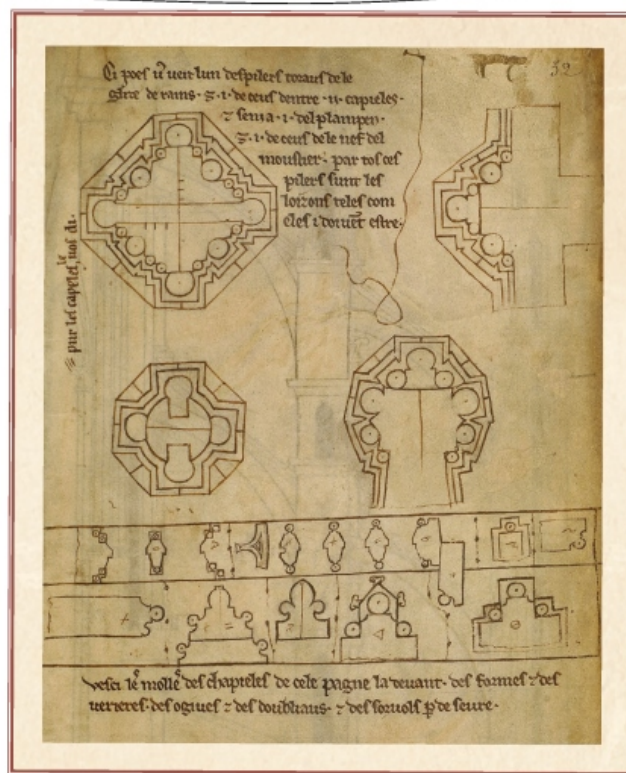 Ci poes vͦ veir lun des pilers toraus de le
glize de rains · ⁊ · i · de ceus dentre · ii · capeles ·
⁊ sen i a · i · del plain pen ·
⁊ · i · de ceus de le nef del
moustier · par tos ces
pilers sunt les
loizons teles com
eles i doivēt estre ·
32
vesci les molles des chapieles de cele pagne la devant · des formes ⁊ des
verieres · des ogives ⁊ des doubliaus · ⁊ des sorvols p̄ de seure ·